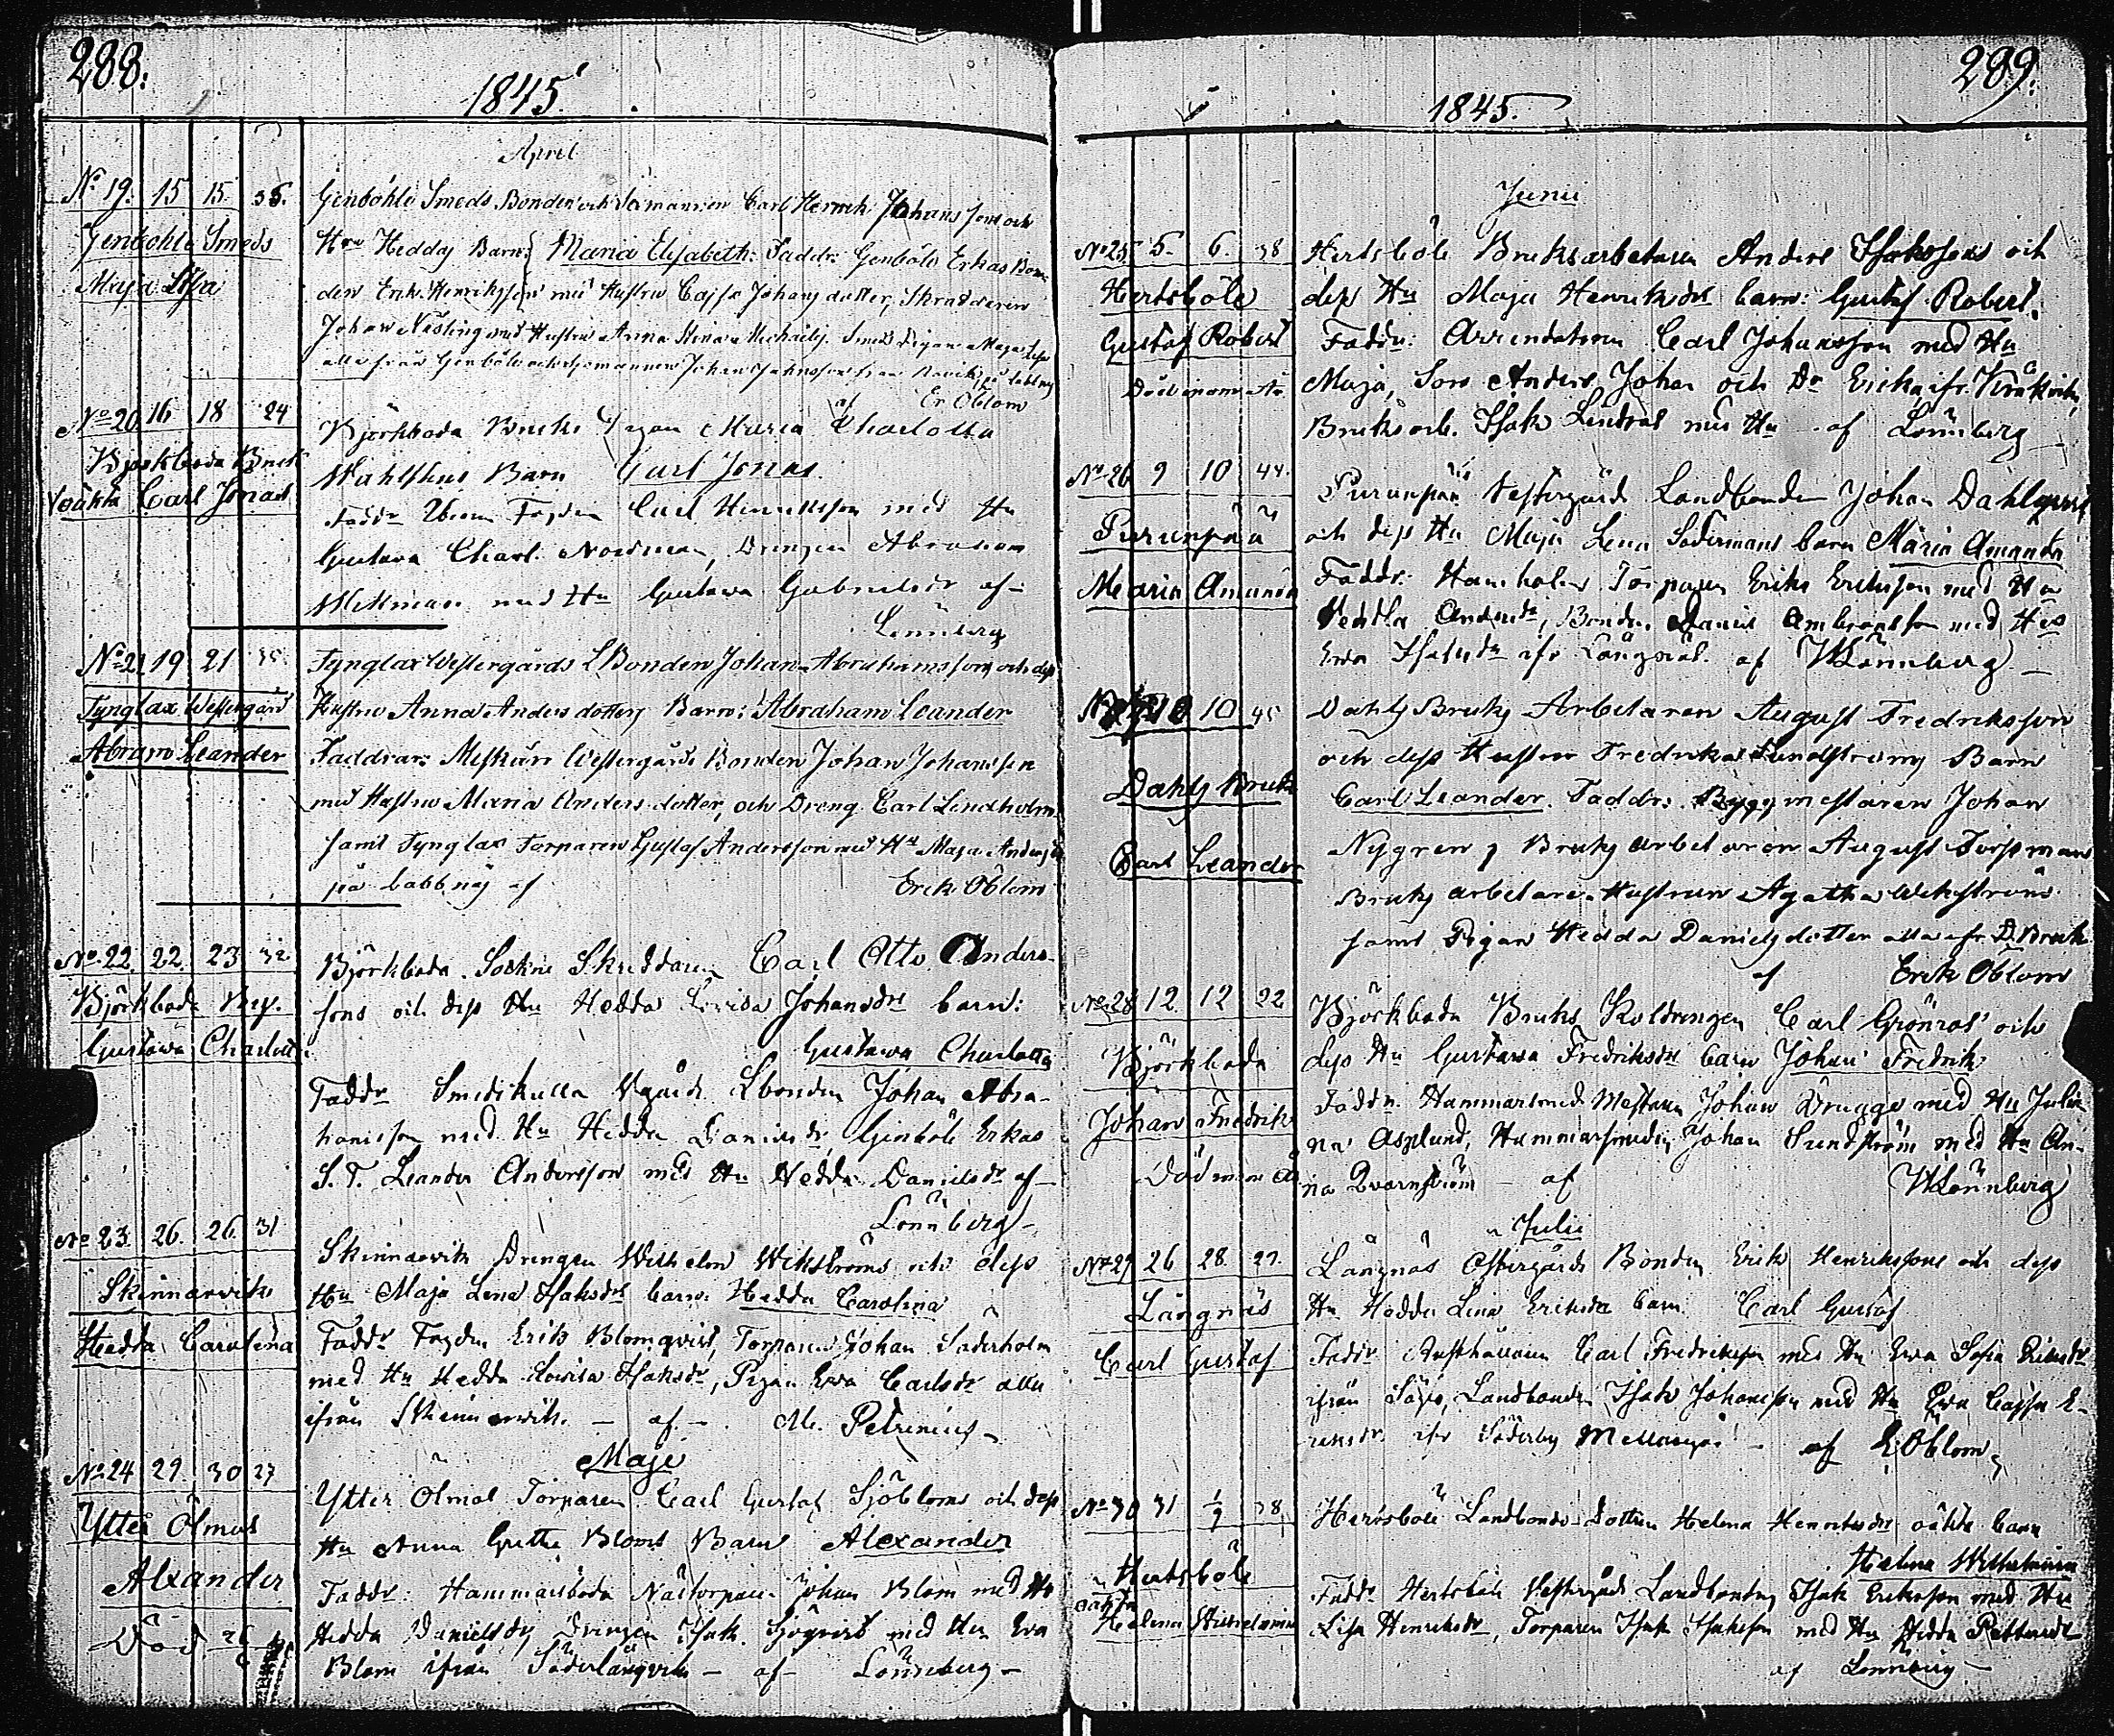 288.
1845.
April
No 19. 15 15. 35.
Genböhle Smeds
Maja Lisa
Genböhle Smeds Bonden och Sämannen Carl Henrik Johanssons och
Hru Heddas Barn: Maria Elisabeth: Faddr: Genböle Erkas Bon-
den Erik Henriksson med Hustru Cajsa Johans dotter, Skräddaren
Johan Näsling med Hustru Anna Stina Michaelsj. Smeds Pigan Maja Lisa
alla från Genböle och Sjömannen Johan Johansson från
af Er. Öblom
No 20 16 18 24
Björkboda Bruk
oäkta Carl Jonas
Björkboda Bruks Pigan Maria Charlotta
Wahlstens Barn Carl Jonas.
Faddr Fogden Carl Henriksson med Hu
Gustava Charl. Nordman, Drengen Abraham
Wikman med Hu Gustava Gabrielsdr af -
Lönnberg
No 21 19 21 35
Tynglax Westergård
Abram Leander
Tynglax Westergårds L Bonden Johan Abrahamssons och dess
Hustru Anna Anders dotters Barn: Abraham Leander
Faddrar: Meskärs Westergårds Bonden Johan Johansson
med Hustru Maria Anders dotter, och Dreng Carl Lindholm
samt Tynglax Torparen Gustaf Andersson med Hu Maja Andersdr
på Labbnäs af Erik Öblom
No 22. 22. 23 32
Björkboda By.
Gustawa Charlotta
Björkboda Sockne Skreddaren Carl Otto Anders-
sons och dess Hu Hedda Lovisa Johansdrs barn:
Gustawa Charlotta
Faddr Smedskulla Wgårds Lbonden Johan Abra-
hamsson med Hu Hedda Danielsdr, Genböle Erkas
S. T. Leander Andersson med Hu Hedda Danielsdr af -
Lönnberg -
No 23. 26. 26. 31
Skinnarvik
Hedda Carolina
Skinnarvik Drengen Wilhelm Wikströms och dess
Hu Maja Lena Isaksdrs barn: Hedda Carolina
Faddr Fogden Erik Blomqvist, Torparen Johan Söderholm
med Hu Hedda Lovisa Isaksdr, Pigan Eva Carlsdr alla
ifrån Skinnarvik. - af - M. Petrenius -
Maji
No 24 29 30 27
Ytter Ölmos
Alexander
Död
Ytter Ölmos Torparen Carl Gustaf Sjöbloms och dess
Hu Anna Gretha Bloms Barn Alexander
Faddr: Hammarsboda Nättorparen Johan Blom med Hu
Hedda Danielsdr, Drengen Isak Sjöqvist med Hu Eva
Blom ifrån Söderlångvik - af - Lönnberg -
289.
1845.
Junii
No 25 5. 6. 38
Hertsböle
Gustaf Robert
Död
Hertsböle Bruksarbetaren Anders Isakssons och
dess Hu Maja Henriksdrs barn: Gustaf Robert.
Faddr: Arrendatorn Carl Johansson med Hu
Maja, Son Anders Johan och Dr Erica ifr.
Bruksarb. Isak Lindroos med Hu - af Lönnberg
No 26 9 10 44.
Purunpää
Maria Amanda
Purunpää Vestergård Landbonden Johan Dahlqvist
och dess Hu Maja Lena Södermans barn Maria Amanda
Faddr: Hamnholms Torparen Eriks Eriksson med Hu
Hedda Andersdr, Bonden Daniel Ambrosson med Hu
Eva Isaksdr ifr Långnäs. af WLönnberg -
10 10 45
Dahls Bruk
Carl Leander
Dahls Bruks Arbetaren August Fredriksson
och dess Hustru Fredrika Lundströms Barn
Carl Leander. Faddr: Byggmestaren Johan
Nygren, Bruks arbetaren August Forssman
Bruks arbetare Hustrun Agatha Wikström
samt Pigan Hedda Danielsdotter alla ifr. D Bruk
af Erik Öblom
No 28 12. 12 22
Björkboda
Johan Fredrik
Död
Björkboda Bruks Koldrengen Carl Grönros och
dess Hu Gustava Fredriksdrs barn Johan Fredrik
Faddr. Hammarsmeds Mestaren Johan Drugge med Hu Julia-
na Asplund, Hammarsmeden Johan Sundström med Hu An-
na Qvarnström - af WLönnberg
Julii
No 29 26 28 27.
Långnäs
Carl Gustaf
Långnäs Östergårds Bonden Erik Henrikssons och dess
Hu Hedda Lena Eriksdr barn: Carl Gustaf
Faddr Rusthållaren Carl Fredriksson med Hu Eva Sofia Eriksdr
ifrån Landbonden Isak Johansson med Hu Eva Cajsa E-
riksdr ifr Söderby - af E Öblom
No 30 31 1/7 38
Hertsböle
oäkta
Helena Wilhelmina
Hertsböle Landbonde Dottren Helena Henriksdrs oäkta barn
Helena Wilhelmina
Faddr Hertsböle Vestergårds Landbonden Isak Eriksson med Hu
Lisa Henriksdr, Torparen Isak Isaksson med Hu Hedda
af Lönnberg -